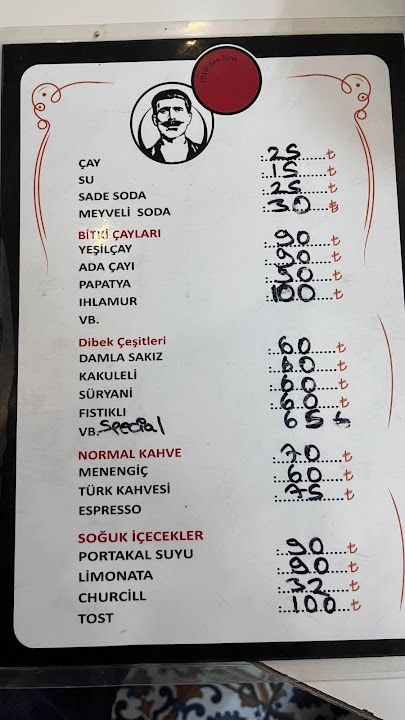 1919'dan beri
ÇAY 25 ₺
SU 15 ₺
SADE SODA 25 ₺
MEYVELİ SODA 30 ₺
BİTKİ ÇAYLARI
YEŞİLÇAY 90 ₺
ADA ÇAYI 90 ₺
PAPATYA 90 ₺
IHLAMUR 100 ₺
VB.
Dibek Çeşitleri
DAMLA SAKIZ 60 ₺
KAKULELİ 60 ₺
SÜRYANİ 60 ₺
FISTIKLI 60 ₺
VB. Special 65 ₺
NORMAL KAHVE
MENENGİÇ 70 ₺
TÜRK KAHVESİ 60 ₺
ESPRESSO 75 ₺
SOĞUK İÇECEKLER
PORTAKAL SUYU 90 ₺
LİMONATA 90 ₺
CHURCİLL 32 ₺
TOST 100 ₺